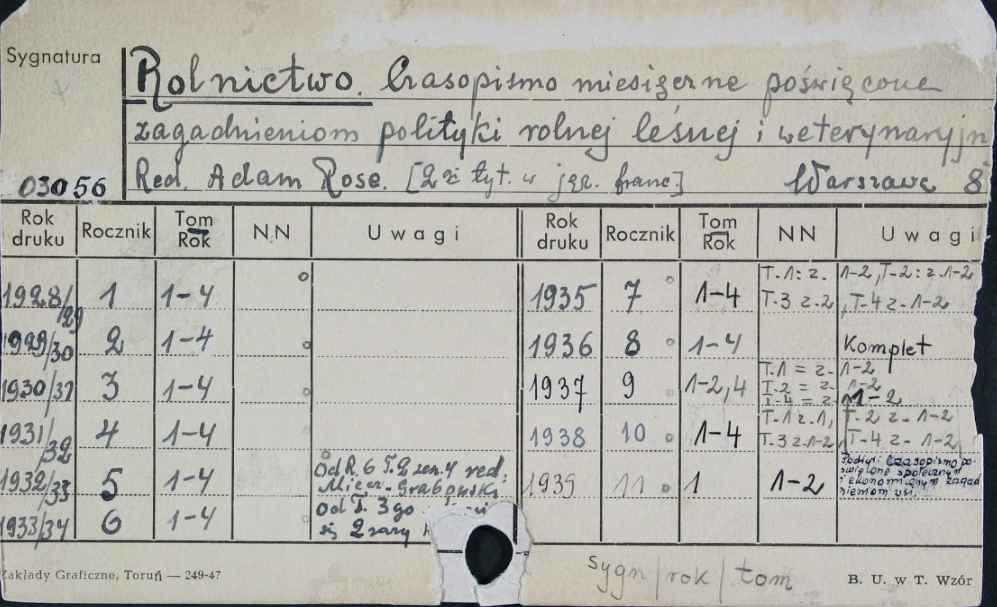 Sygnatura
Rolnictwo. Czasopismo miesięczne poświęcone
zagadnieniom polityki rolnej leśnej i weterynaryjn
03056 Red. Adam Rose. [2 gi tyt. w jęz. franc] Warszawa 8°
Rok druku Rocznik Tom Rok NN Uwagi Rok druku Rocznik Tom Rok NN Uwagi
1928/29 1 1-4 1935 7 1-4 T.1: z. 1-2, T-2: z 1-2
T-3 z-2, T-4 z-1-2
1929/30 2 1-4 1936 8 1-4 Komplet
1930/31 3 1-4 1937 9 1-2,4 T.1 = z- 1-2
T-2 = z- 1-2
T-4 = z 1-2
1931/32 4 1-4 1938 10 1-4 T-1 z 1, T-2 z- 1-2
T-3 z 1-2, T-4 z- 1-2
1932/33 5 1-4 Od R. 6 T. 2 zesz. 4 red. 1939 11 1 1-2 Czasopismo po-
święcone społecznym
i ekonomicznym zagad
nieniom wsi.
1933/34 6 1-4 od T. 3go
się 2 razy
Zakłady Graficzne, Toruń — 249-47 sygn/rok/tom B. U. w T. Wzór